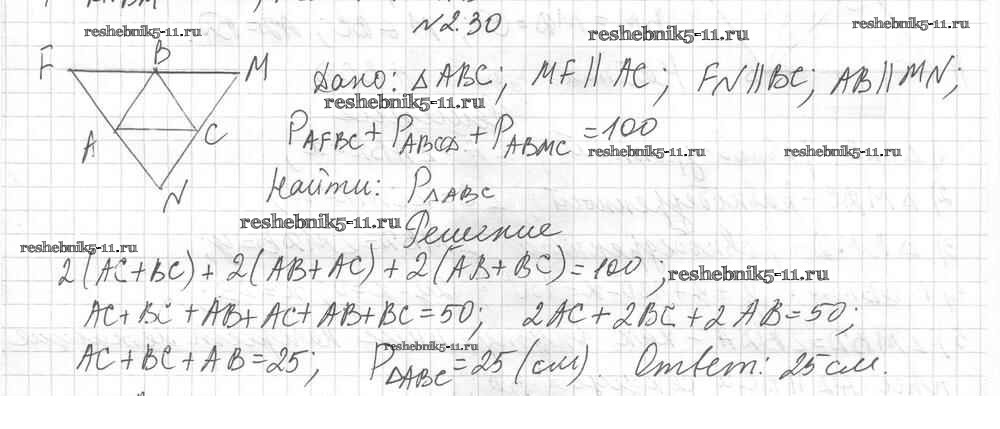 №2.30
reshebnik5-11.ru
reshebnik5-11.ru
reshebnik5-11.ru
F B M
A C
N
Дано: △ABC; MF || AC; FN || BC; AB || MN;
reshebnik5-11.ru
P AFBC + P ABCD + P ABMC = 100
reshebnik5-11.ru
reshebnik5-11.ru
Найти: P△ABC
reshebnik5-11.ru
Решение
reshebnik5-11.ru
2(AC+BC) + 2(AB+AC) + 2(AB+BC) = 100;
reshebnik5-11.ru
AC+BC+AB+AC+AB+BC=50; 2AC+2BC+2AB=50;
reshebnik5-11.ru
AC+BC+AB=25; P△ABC=25 (см). Ответ: 25 см.